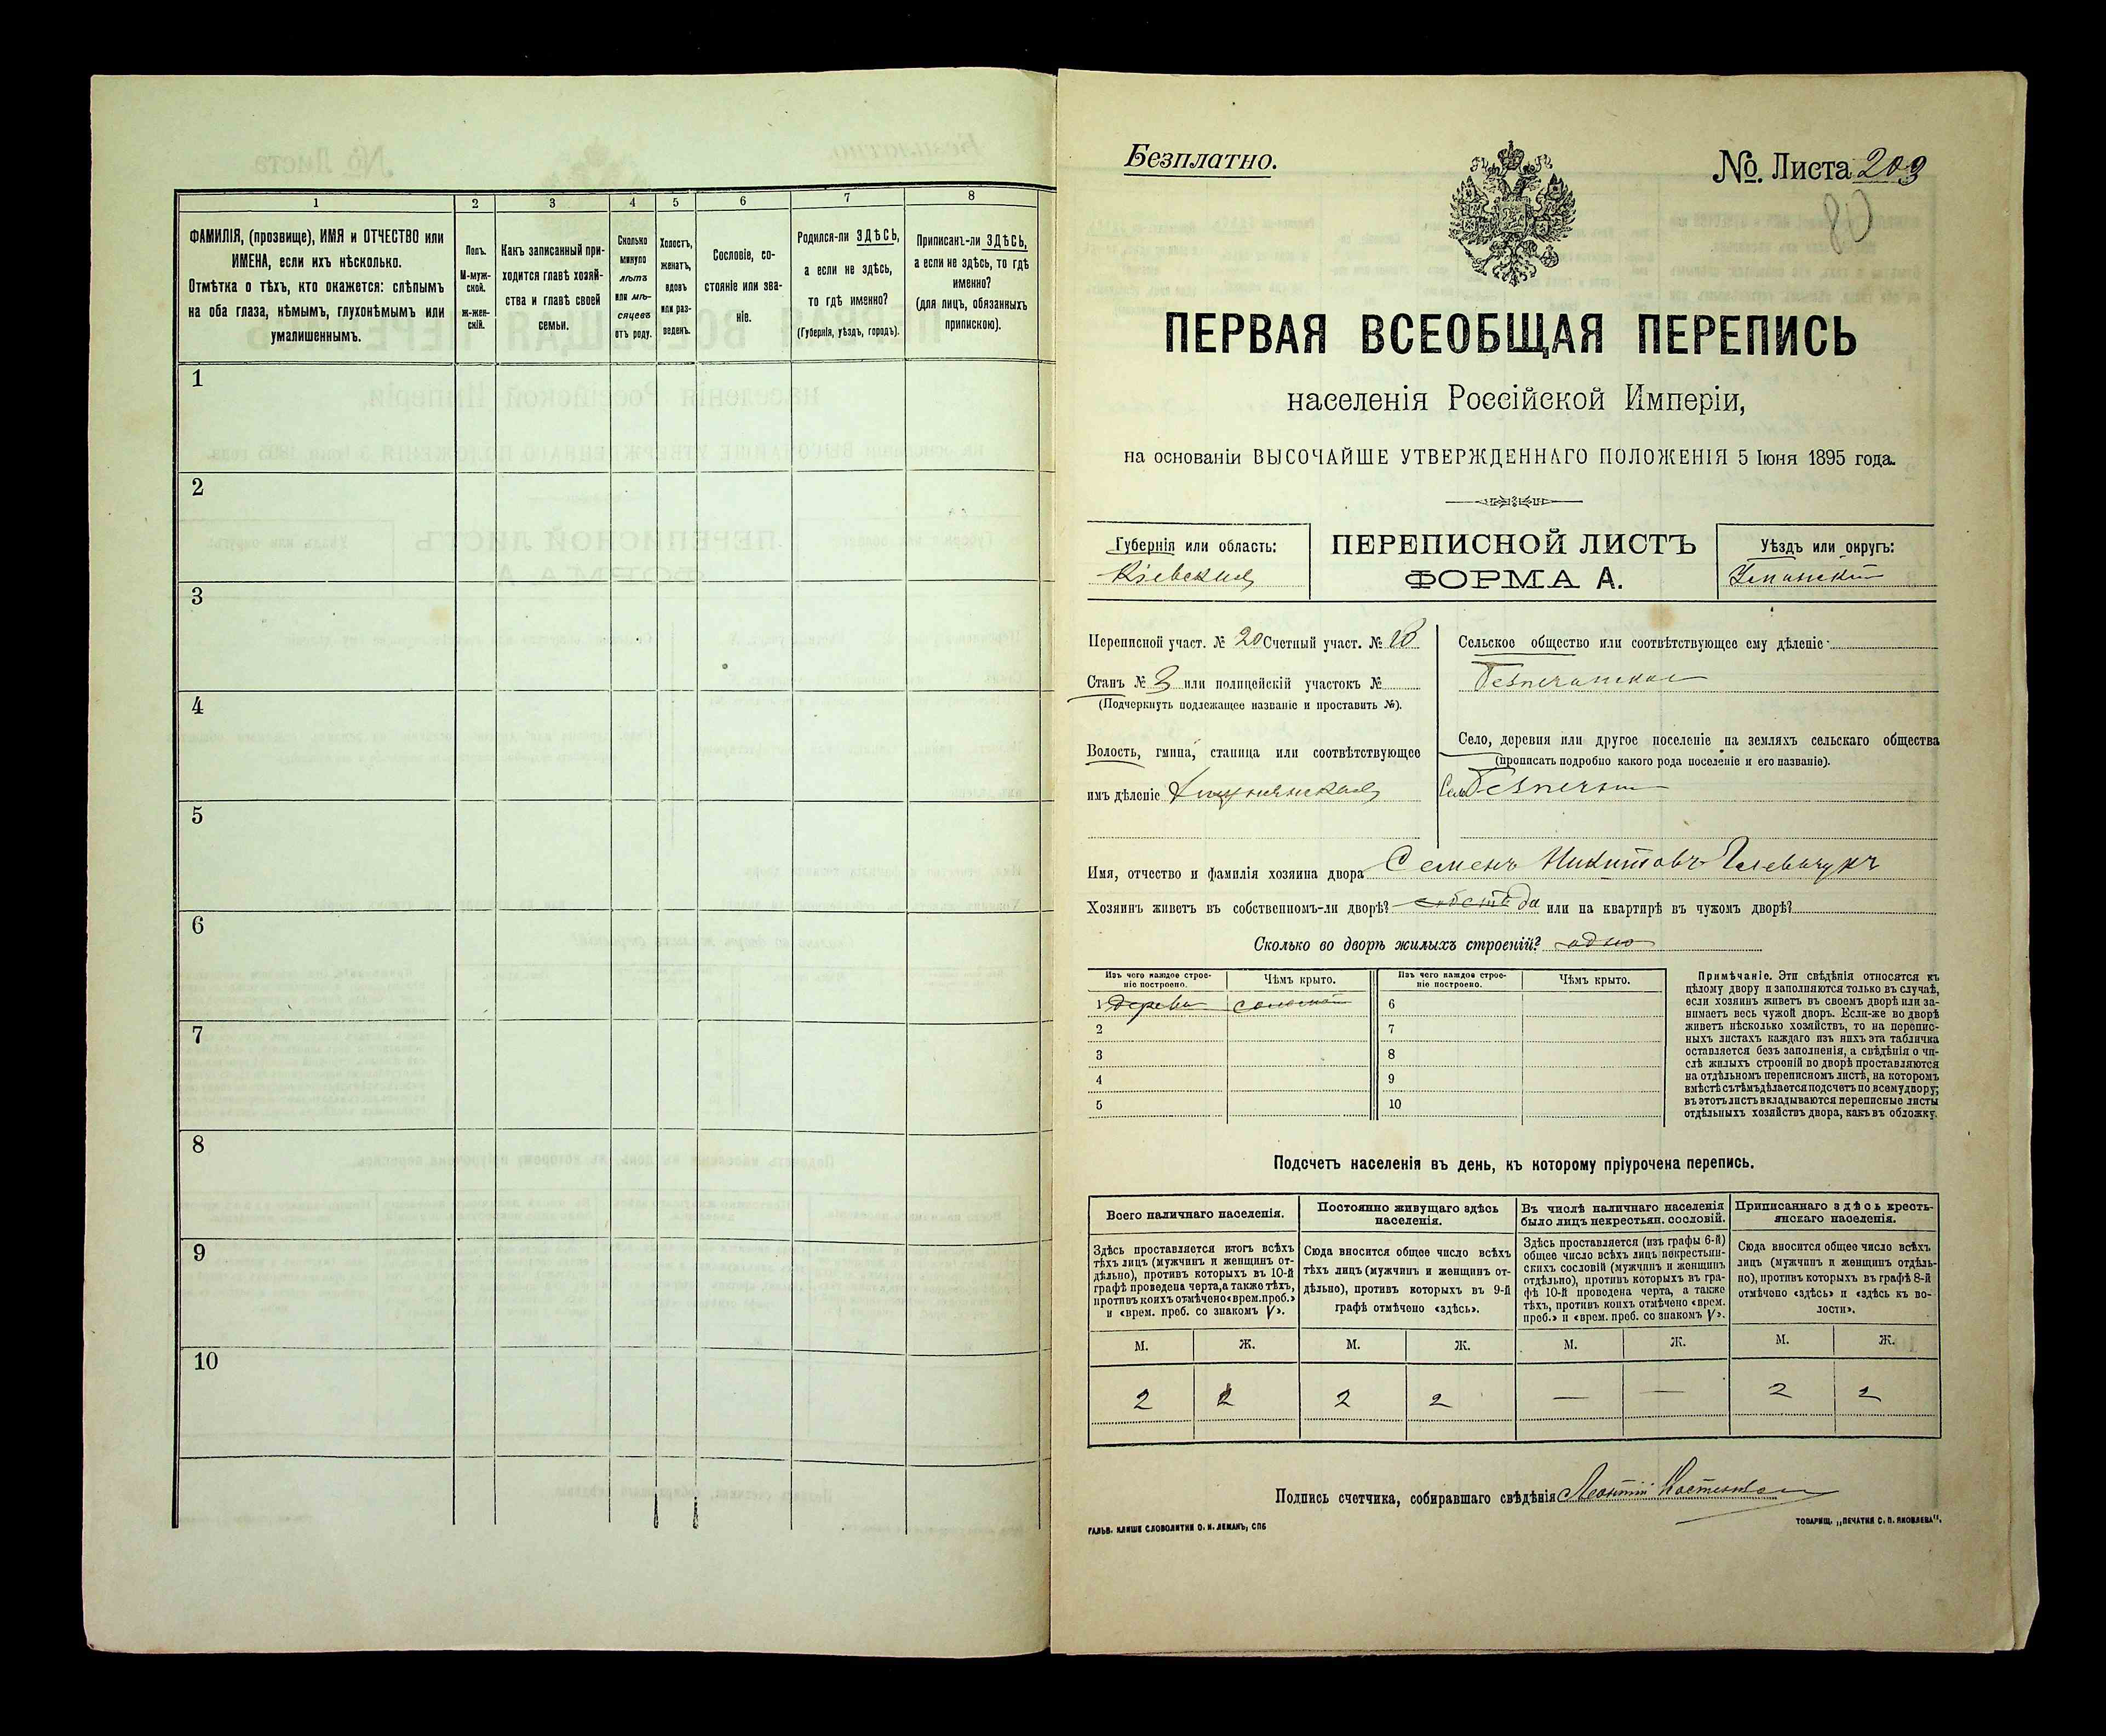 1 2 3 4 5 6 7 8
ФАМИЛІЯ, (прозвище), ИМЯ и ОТЧЕСТВО или
ИМЕНА, если ихъ нѣсколько.
Отмѣтка о тѣхъ, кто окажется: слѣпымъ
на оба глаза, нѣмымъ, глухонѣмымъ или
умалишеннымъ.
Полъ.
М-муж-
ской.
ж-жен-
скій.
Какъ записанный при-
ходится главѣ хозяй-
ства и главѣ своей
семьи.
Сколько
минуло
лѣтъ
или мѣ-
сяцевъ
отъ роду.
Холостъ,
женатъ,
вдовъ
или раз-
веденъ.
Сословіе, со-
стояніе или зва-
ніе.
Родился-ли ЗДѢСЬ,
а если не здѣсь,
то гдѣ именно?
(Губернія, уѣздъ, городъ).
Приписанъ-ли ЗДѢСЬ,
а если не здѣсь, то гдѣ
именно?
(для лицъ, обязанныхъ
припискою).
1
2
3
4
5
6
7
8
9
10
Безплатно.
№ Листа 203
ПЕРВАЯ ВСЕОБЩАЯ ПЕРЕПИСЬ
населенія Россійской Имперіи,
на основаніи ВЫСОЧАЙШЕ УТВЕРЖДЕННАГО ПОЛОЖЕНІЯ 5 Іюня 1895 года.
Губернія или область:
Кіевская
ПЕРЕПИСНОЙ ЛИСТЪ
ФОРМА А.
Уѣздъ или округъ:
Уманскій
Переписной участ. № 20 Счетный участ. №
Станъ № 3 или полицейскій участокъ №
(Подчеркнуть подлежащее названіе и проставить №).
Волость, гмина, станица или соотвѣтствующее
имъ дѣленіе
Сельское общество или соотвѣтствующее ему дѣленіе
Безпечанское
Село, деревня или другое поселеніе на земляхъ сельскаго общества
(прописать подробно какого рода поселеніе и его названіе).
Село
Имя, отчество и фамилія хозяина двора Семенъ Никитовъ
Хозяинъ живетъ въ собственномъ-ли дворѣ? да или на квартирѣ въ чужомъ дворѣ?
Сколько во дворѣ жилыхъ строеній? одно
Изъ чего каждое строе-
ніе построено.
Чѣмъ крыто.
Изъ чего каждое строе-
ніе построено.
Чѣмъ крыто.
1 дерева соломой 6
2 7
3 8
4 9
5 10
Примѣчаніе. Эти свѣдѣнія относятся къ
цѣлому двору и заполняются только въ случаѣ,
если хозяинъ живетъ въ своемъ дворѣ или за-
нимаетъ весь чужой дворъ. Если-же во дворѣ
живетъ нѣсколько хозяйствъ, то на перепис-
ныхъ листахъ каждаго изъ нихъ эта табличка
оставляется безъ заполненія, а свѣдѣнія о чи-
слѣ жилыхъ строеній во дворѣ проставляются
на отдѣльномъ переписномъ листѣ, на которомъ
вмѣстѣ съ тѣмъ дѣлается подсчетъ по всему двору;
въ этотъ листъ вкладываются переписные листы
отдѣльныхъ хозяйствъ двора, какъ въ обложку.
Подсчетъ населенія въ день, къ которому пріурочена перепись.
Всего наличнаго населенія.
Постоянно живущаго здѣсь
населенія.
Въ числѣ наличнаго населенія
было лицъ некрестьян. сословій.
Приписаннаго здѣсь кресть-
янскаго населенія.
Здѣсь проставляется итогъ всѣхъ
тѣхъ лицъ (мужчинъ и женщинъ от-
дѣльно), противъ которыхъ въ 10-й
графѣ проведена черта, а также тѣхъ,
противъ коихъ отмѣчено «врем. преб.»
и «врем. преб. со знакомъ V».
Сюда вносится общее число всѣхъ
тѣхъ лицъ (мужчинъ и женщинъ от-
дѣльно), противъ которыхъ въ 9-й
графѣ отмѣчено «здѣсь».
Здѣсь проставляется (изъ графы 6-й)
общее число всѣхъ лицъ некрестьян-
скихъ сословій (мужчинъ и женщинъ
отдѣльно), противъ которыхъ въ гра-
фѣ 10-й проведена черта, а также
тѣхъ, противъ коихъ отмѣчено «врем.
преб.» и «врем. преб. со знакомъ V».
Сюда вносится общее число всѣхъ
лицъ (мужчинъ и женщинъ отдѣль-
но), противъ которыхъ въ графѣ 8-й
отмѣчено «здѣсь» и «здѣсь къ во-
лости».
М. Ж. М. Ж. М. Ж. М. Ж.
2 2 2 2 — — 2 2
Подпись счетчика, собиравшаго свѣдѣнія Леонтій
ГАЛЬВ. КЛИШЕ СЛОВОЛИТНИ О. И. ЛЕМАНЪ, СПБ
ТОВАРИЩ. „ПЕЧАТНЯ С. П. ЯКОВЛЕВА“.